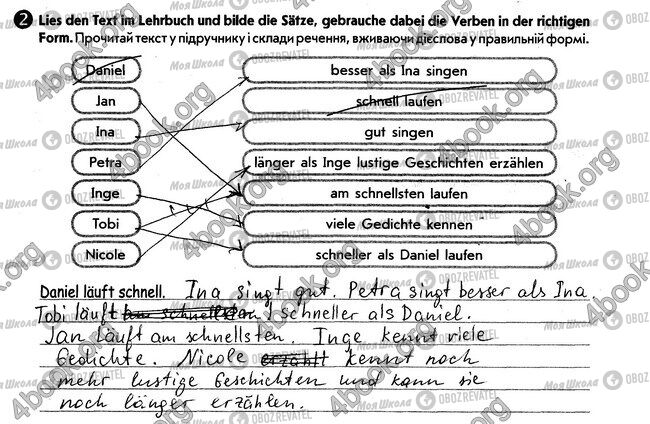 2 Lies den Text im Lehrbuch und bilde die Sätze, gebrauche dabei die Verben in der richtigen
Form. Прочитай текст у підручнику і склади речення, вживаючи дієслова у правильній формі.
Daniel
besser als Ina singen
Jan
schnell laufen
Ina
gut singen
Petra
länger als Inge lustige Geschichten erzählen
Inge
am schnellsten laufen
Tobi
viele Gedichte kennen
Nicole
schneller als Daniel laufen
Daniel läuft schnell. Ina singt gut. Petra singt besser als Ina.
Tobi läuft schneller als Daniel.
Jan läuft am schnellsten. Inge kennt viele
Gedichte. Nicole kennt noch
mehr lustige Geschichten und kann sie
noch länger erzählen.
4book.org
Моя Школа
OBOZREVATEL